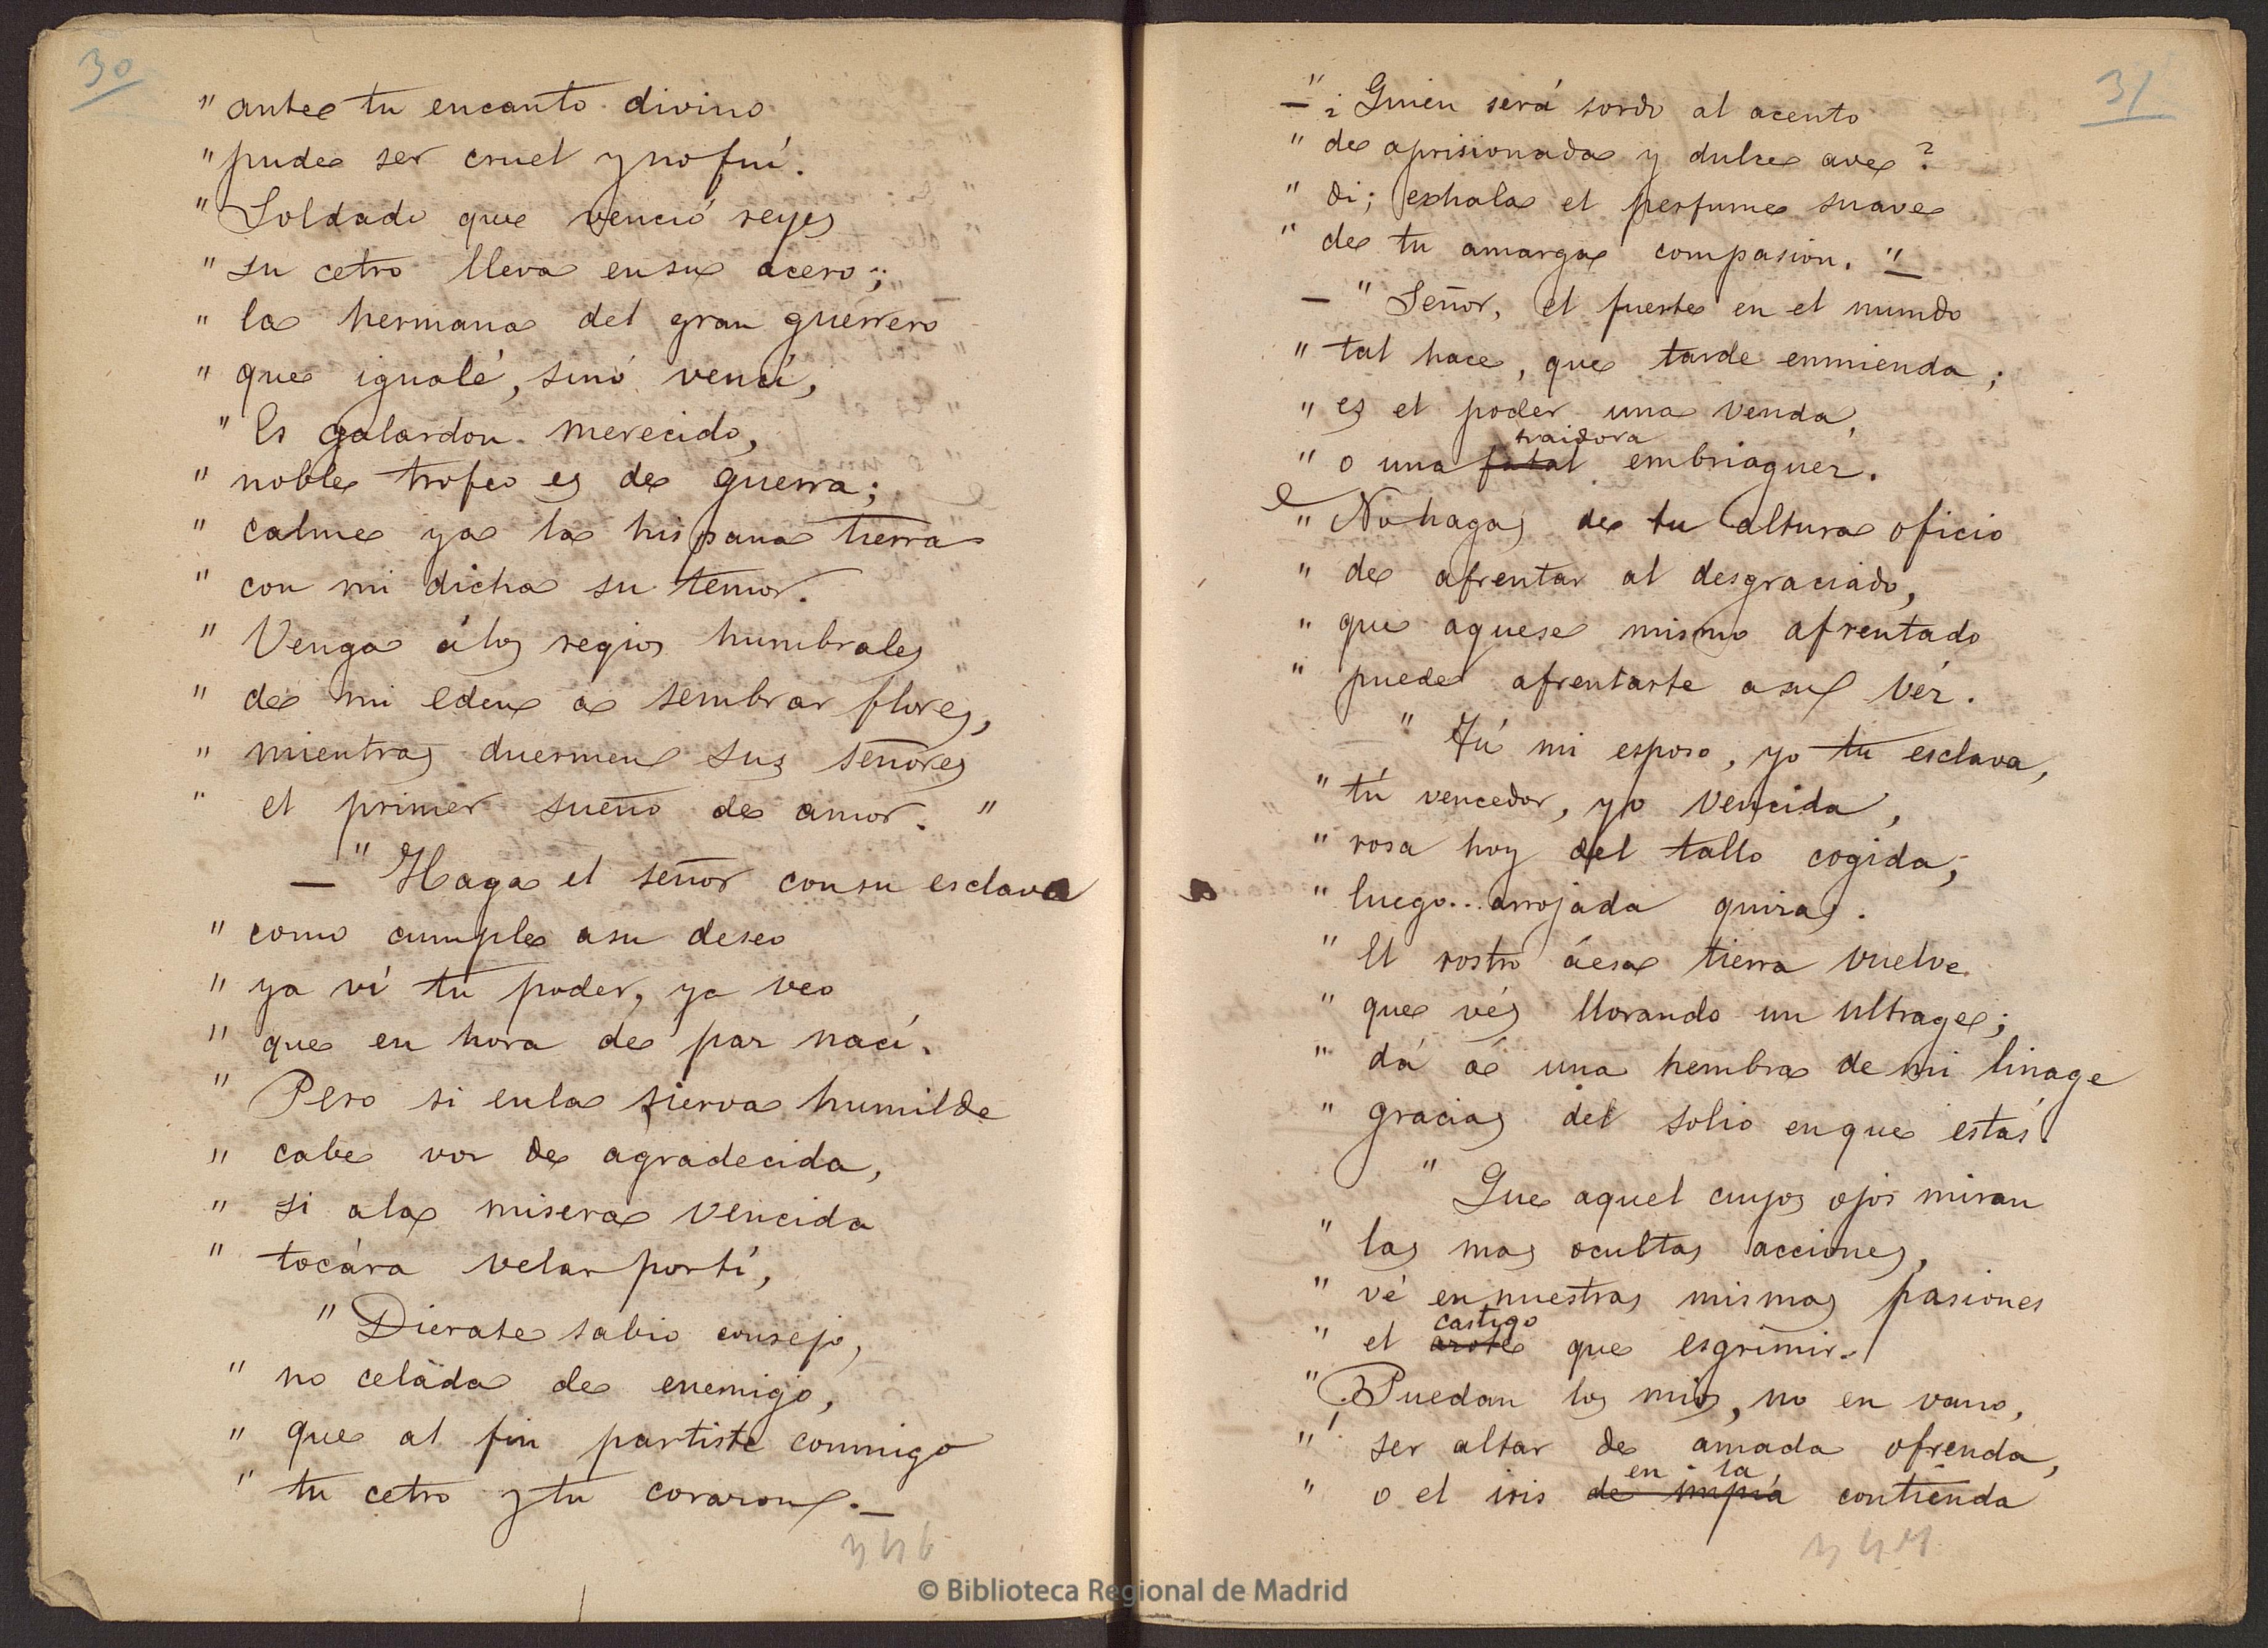 30
" ante tu encanto divino
" pude ser cruel y no fuí.
" Soldado que venció reyes
" su cetro lleva en su acero;
" la hermana del gran guerrero
" que igualé, sinó vencí,
" Es galardon merecido,
" noble trofeo es de guerra;
" calme ya la hispana tierra
" con mi dicha su temor.
" Venga á los regios humbrales
" de mi eden a sembrar flores,
" mientras duermen sus señores
" el primer sueño de amor. "
— " Haga el señor con su esclava
" como cumple a su deseo
" ya ví tu poder, ya veo
" que en hora de paz nací.
" Pero si en la sierva humilde
" cabe voz de agradecida,
" si a la misera vencida
" tocára velar por tí,
" Dierate sabio consejo,
" no celada de enemigo,
" que al fin partiste conmigo
" tu cetro y tu corazon. —
31
— " ¿Quien será sordo al acento
" de aprisionada y dulce ave?
" di; exhala el perfume suave
" de tu amarga compasion. "
— " Señor, el fuerte en el mundo
" tal hace, que tarde enmienda;
" es el poder una venda,
traidora
" o una fatal embriaguez.
" No hagas de tu altura oficio
" de afrentar al desgraciado,
" que aquese mismo afrentado
" puede afrentarte a su vez.
" Tú mi esposo, yo tu esclava,
" tú vencedor, yo vencida,
" rosa hoy del tallo cogida,
" luego.. arrojada quizas.
" El rostro á esa tierra vuelve
" que vés llorando un ultrage;
" dá á una hembra de mi linage
" gracias del solio en que estás.
" Que aquel cuyos ojos miran
" las mas ocultas acciones,
" vé en nuestras mismas pasiones
castigo
" el azote que esgrimir.
" Puedan los mios, no en vano,
" ser altar de amada ofrenda,
en la
" o el iris de impía contienda
© Biblioteca Regional de Madrid